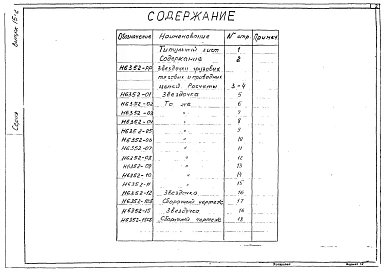 СОДЕРЖАНИЕ
Обозначение Наименование № стр. Примеч
Титульный лист 1
Содержание 2
Н6352-РР Звездочки грузовых
тяговых и приводных
цепей. Расчеты 3-4
Н6352-01 Звездочка 5
Н6352-02 То же 6
Н6352-03 " 7
Н6352-04 " 8
Н6352-05 " 9
Н6352-06 " 10
Н6352-07 " 11
Н6352-08 " 12
Н6352-09 " 13
Н6352-10 " 14
Н6352-11 " 15
Н6352-12 Звездочка 16
Сборочный чертеж 17
Н6352-13 Звездочка 18
Сборочный чертеж
Выпуск
Серия
Копировал Формат